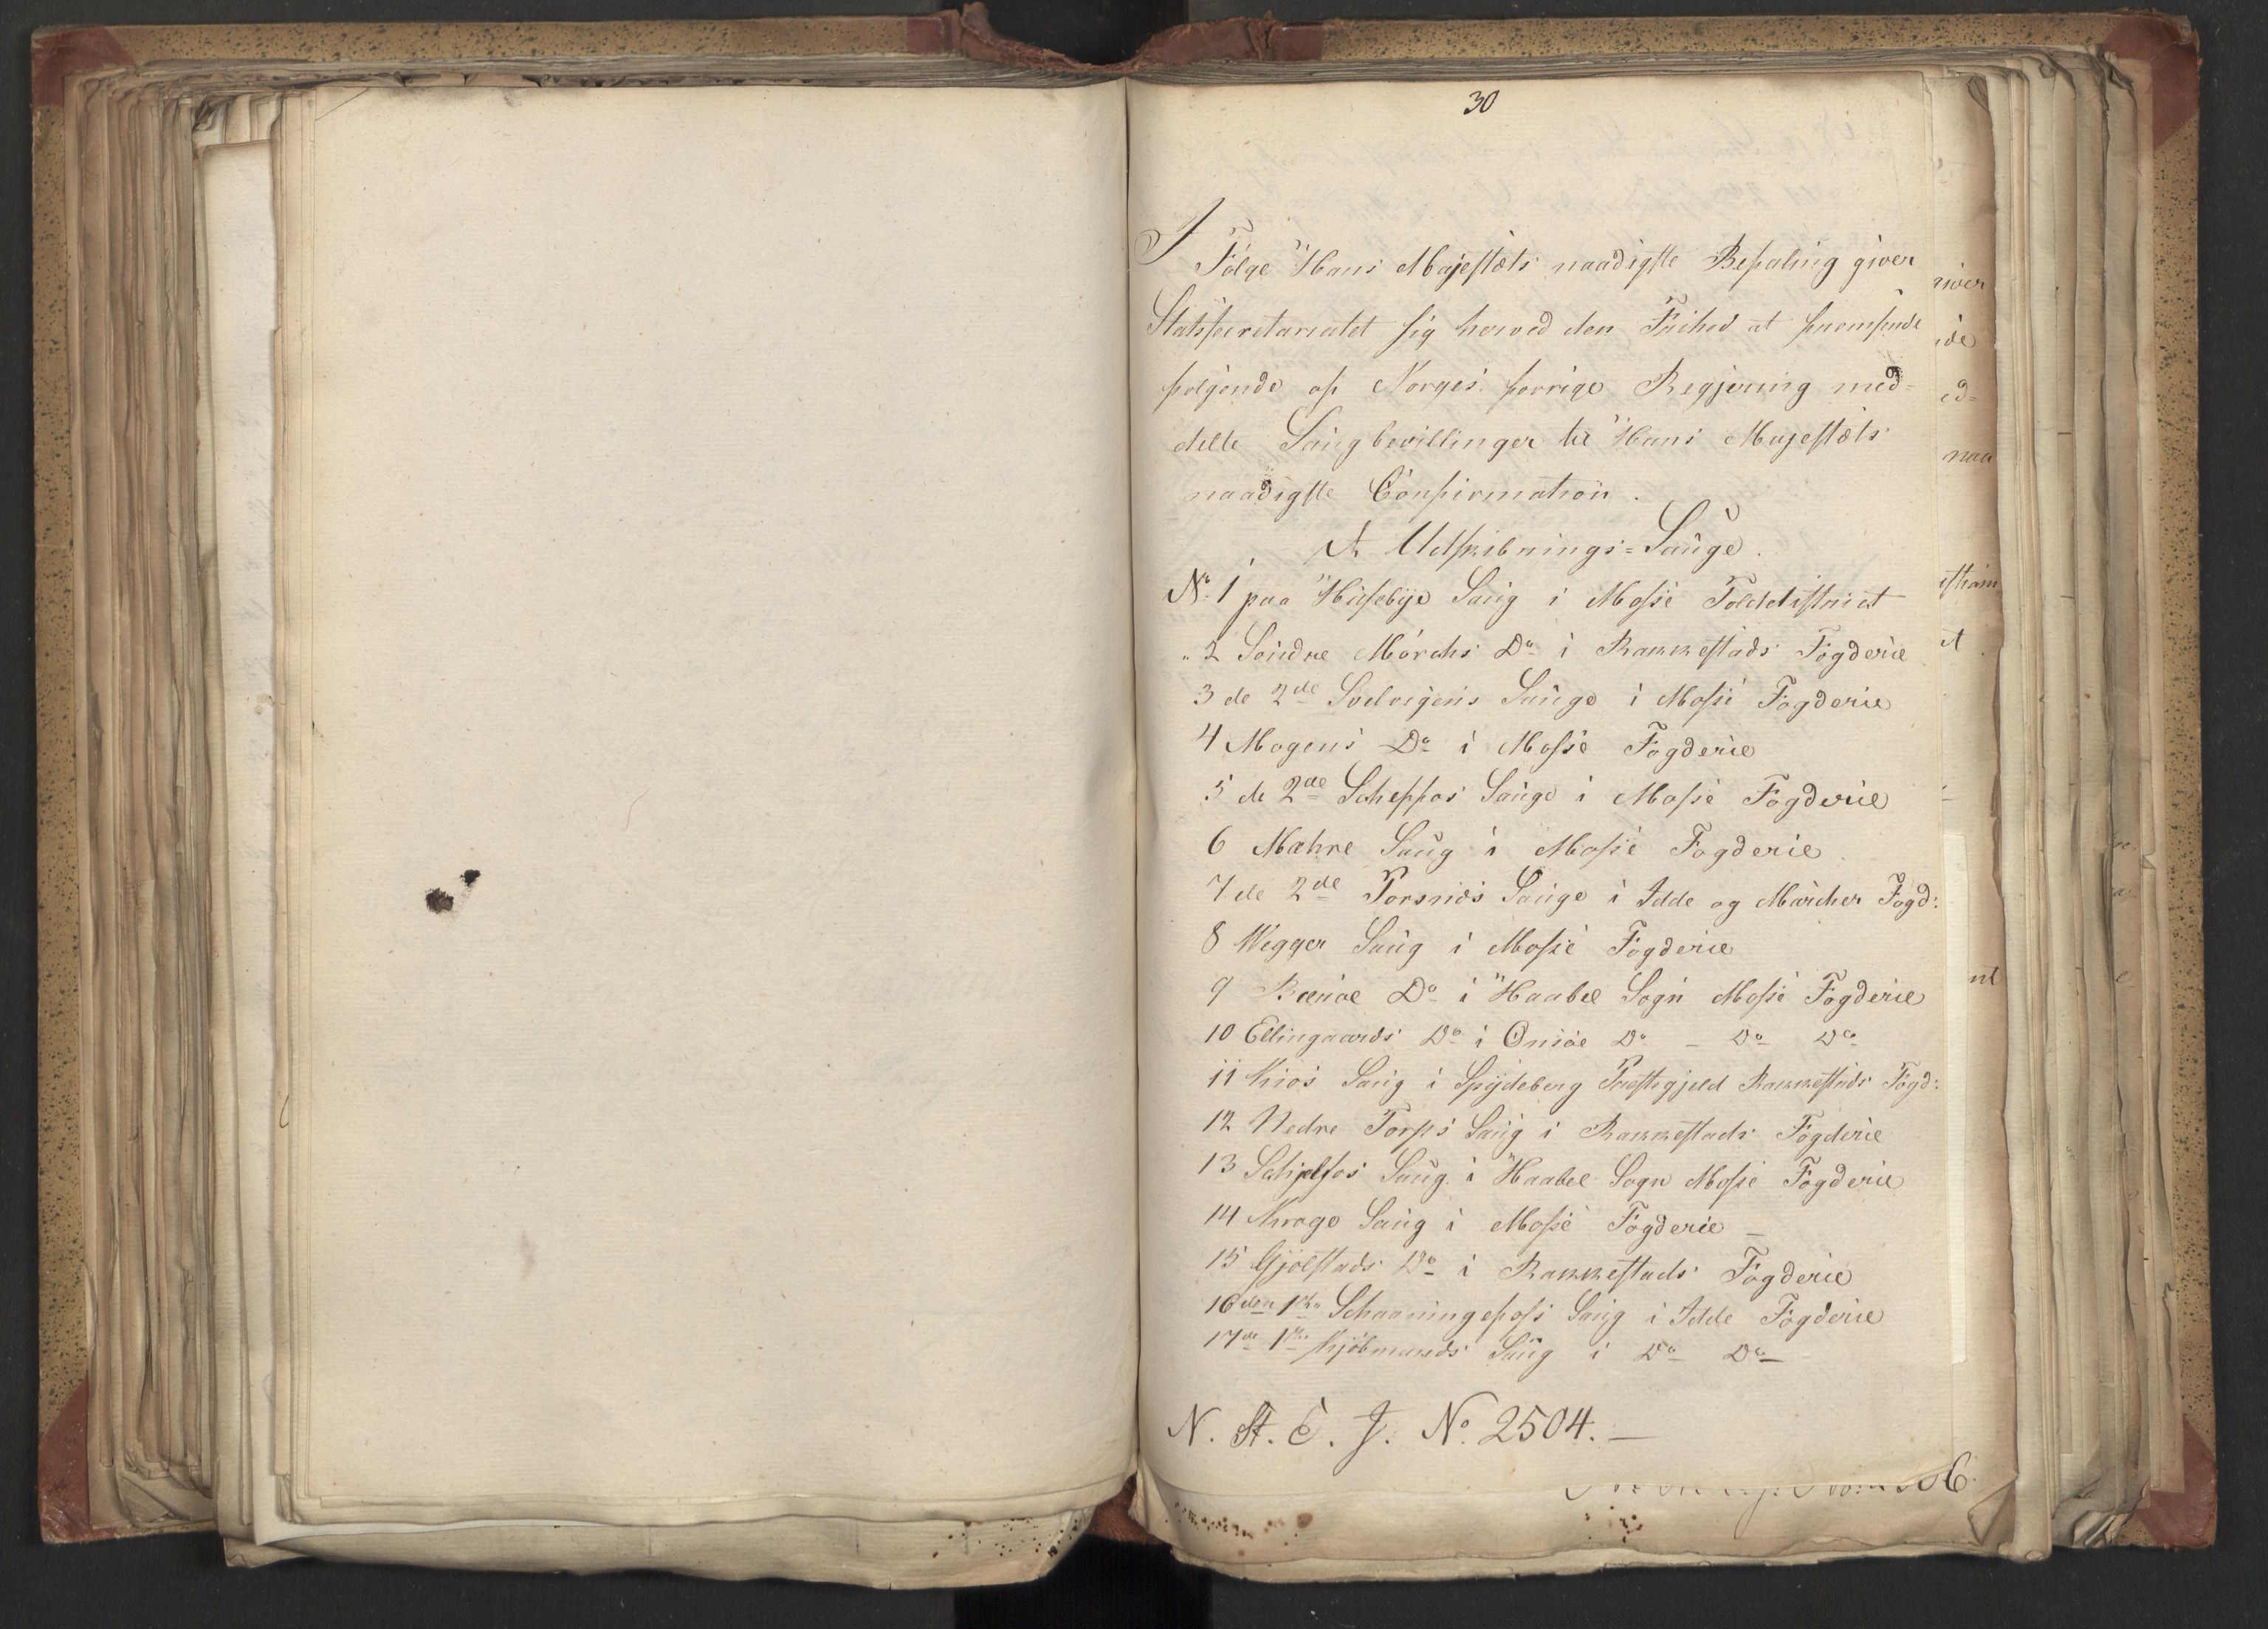 30
I
Følge Hans Majestæts naadigste Befaling giver
Statssecretariatet sig herved den Frihed at fremsende
følgende af Norges forrige Regjering med=
delte Saugbevillinger til Hans Majestæts
naadigste Confirmation.
A. Udskibnings=Sauge.
No. 1 paa Huseby Saug i Mosse Tolddistrict
" 2 Søndre Mørchs Do i Rakkestads Fogderie
3 de 2de Soelvigens Sauge i Mosse Fogderie
4 Mogens Do i Mosse Fogderie
5 de 2de Scheppos Sauge i Mosse Fogderie
6 Mahre Saug i Mosse Fogderie
7 de 2de Torsnæs Sauge i Idde og Marcher Fogd:
8 Wegger Saug i Mosse Fogderie
9 Do i Haabøl Sogn Mosse Fogderie
10 Ellingaards Do i Onsøe Do – Do Do
11 Saug i Spydeberg Præstegjeld Rakkestads Fogd:
12 Nedre Torps Saug i Rakkestads Fogderie
13 Schjelfos Saug i Haabøl Sogn Mosse Fogderie
14 Krogs Saug i Mosse Fogderie –
15 Gjølstads Do i Rakkestads Fogderie
16 den 1ste Schaaningsfoss Saug i Idde Fogderie
17 de 1ste Kjøbmands Saug i Do Do
N. St. E. J. No. 2504. –